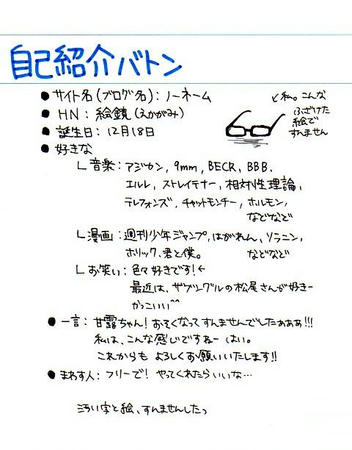 自己紹介バトン
●サイト名(ブログ名):ノーネーム
●HN:絵鏡(えかがみ)
●誕生日:12月18日
●好きな
↖私。こんな
ふざけた
絵で
すんません
└音楽:アジカン, 9mm, BECR, BBB,
エルレ, ストレイテナー, 相対性理論,
テレフォンズ, チャットモンチー, ホルモン,
などなど
└漫画:週刊少年ジャンプ, はがれん, ソラニン,
ホリック, 君と僕。 などなど
└お笑い:色々好きです!←
最近は、ザブングルの松尾さんが好きー
かっこいい^^
●一言:甘露ちゃん!おそくなってすんませんでしたぁぁぁ!!!
私は、こんな感じですねー はい。
これからも よろしくお願いいたします!!
●まわす人:フリーで! やってくれたらいいな…
汚い字と絵、すんませんしたっ